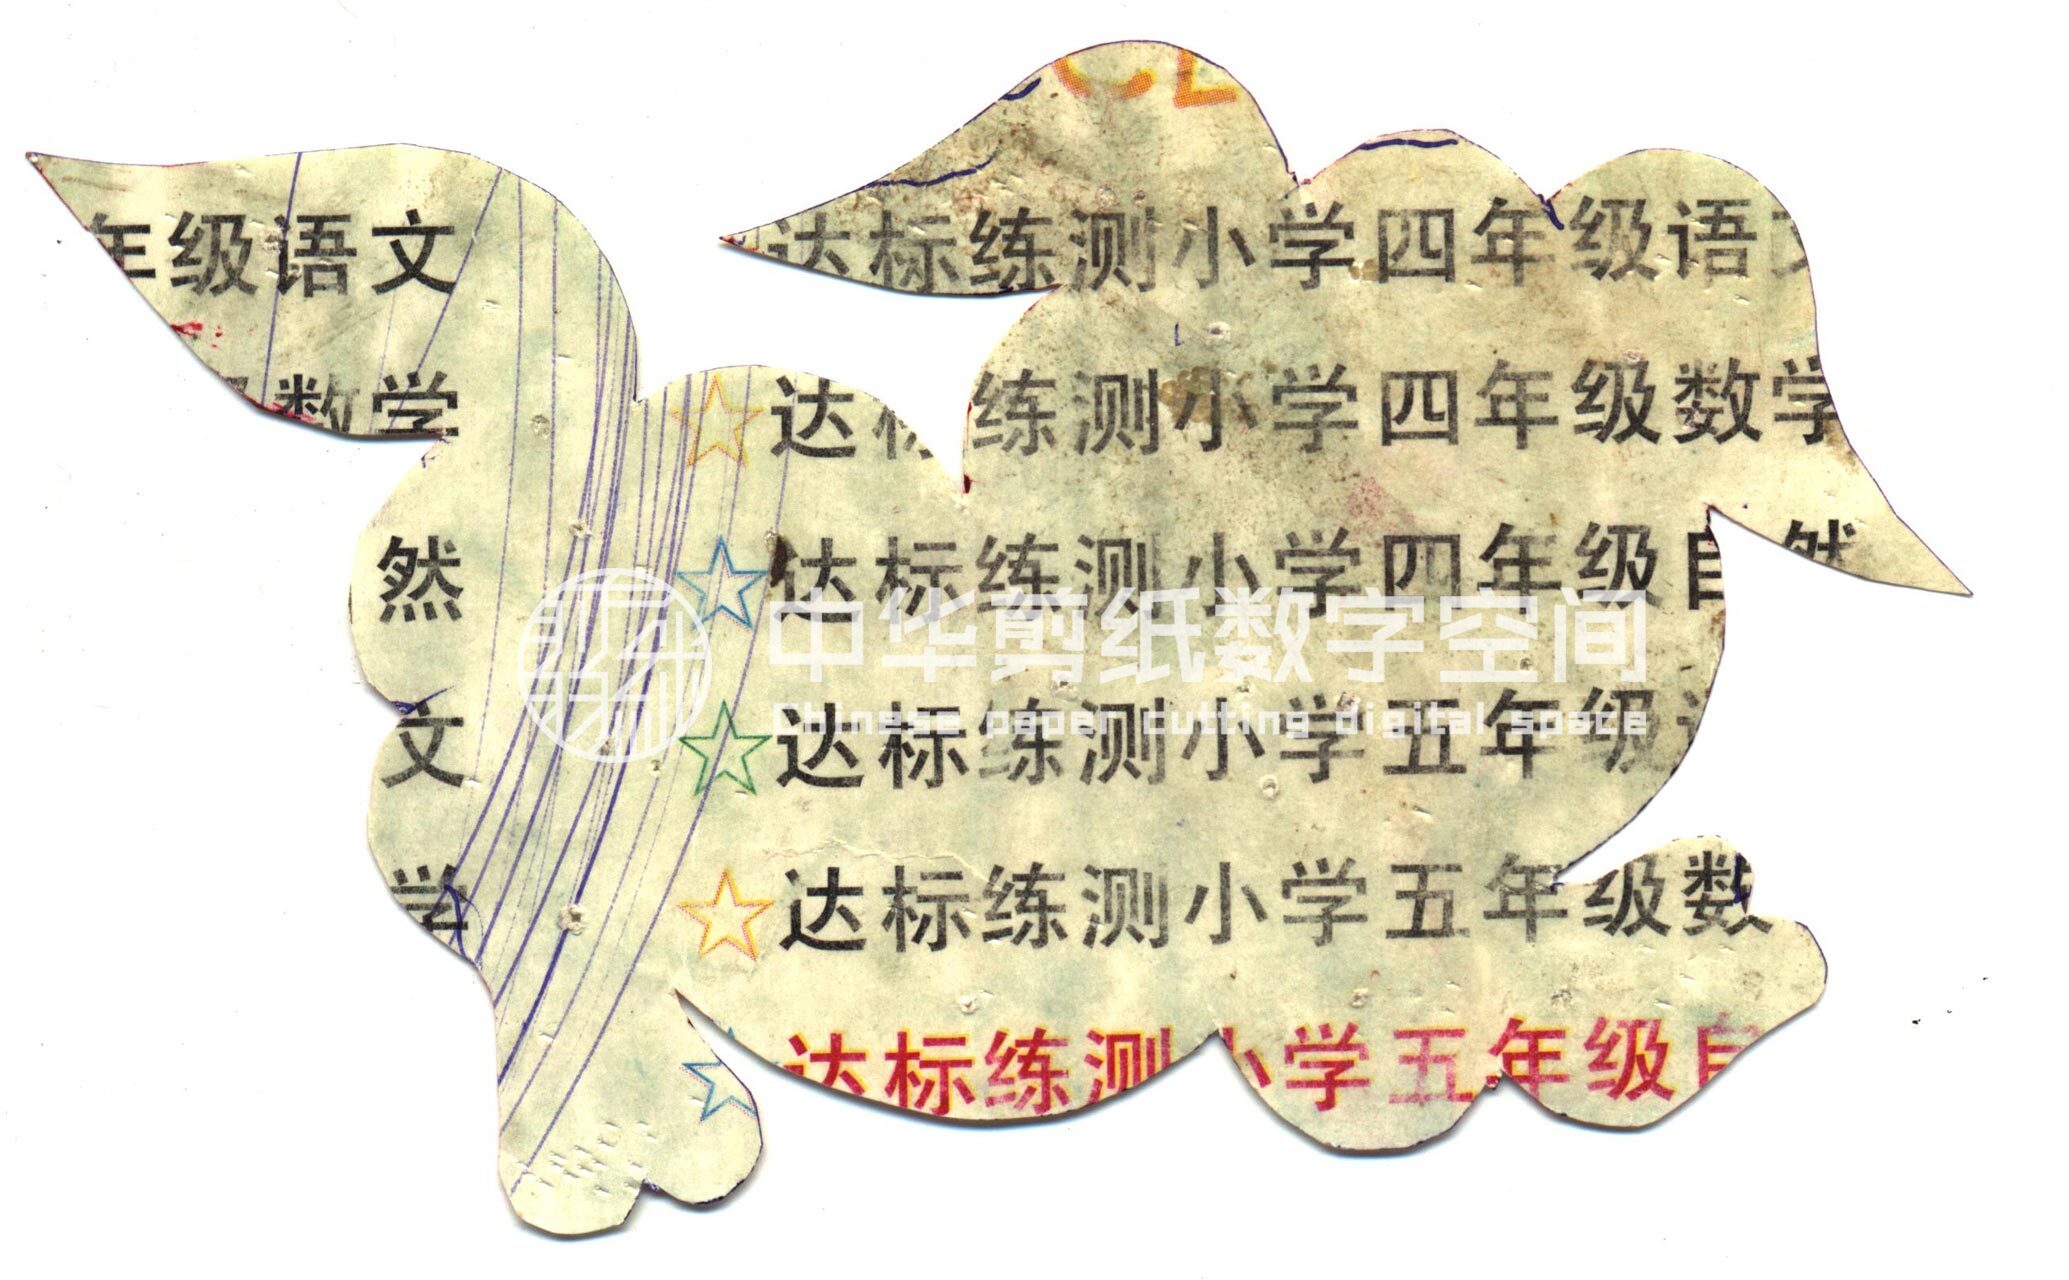 年级语文 达标练测小学四年级语文
数学 ☆达标练测小学四年级数学
然 ☆达标练测小学四年级自然
中华剪纸数字空间
Chinese paper cutting digital space
文 ☆达标练测小学五年级
学 ☆达标练测小学五年级数
☆达标练测小学五年级自